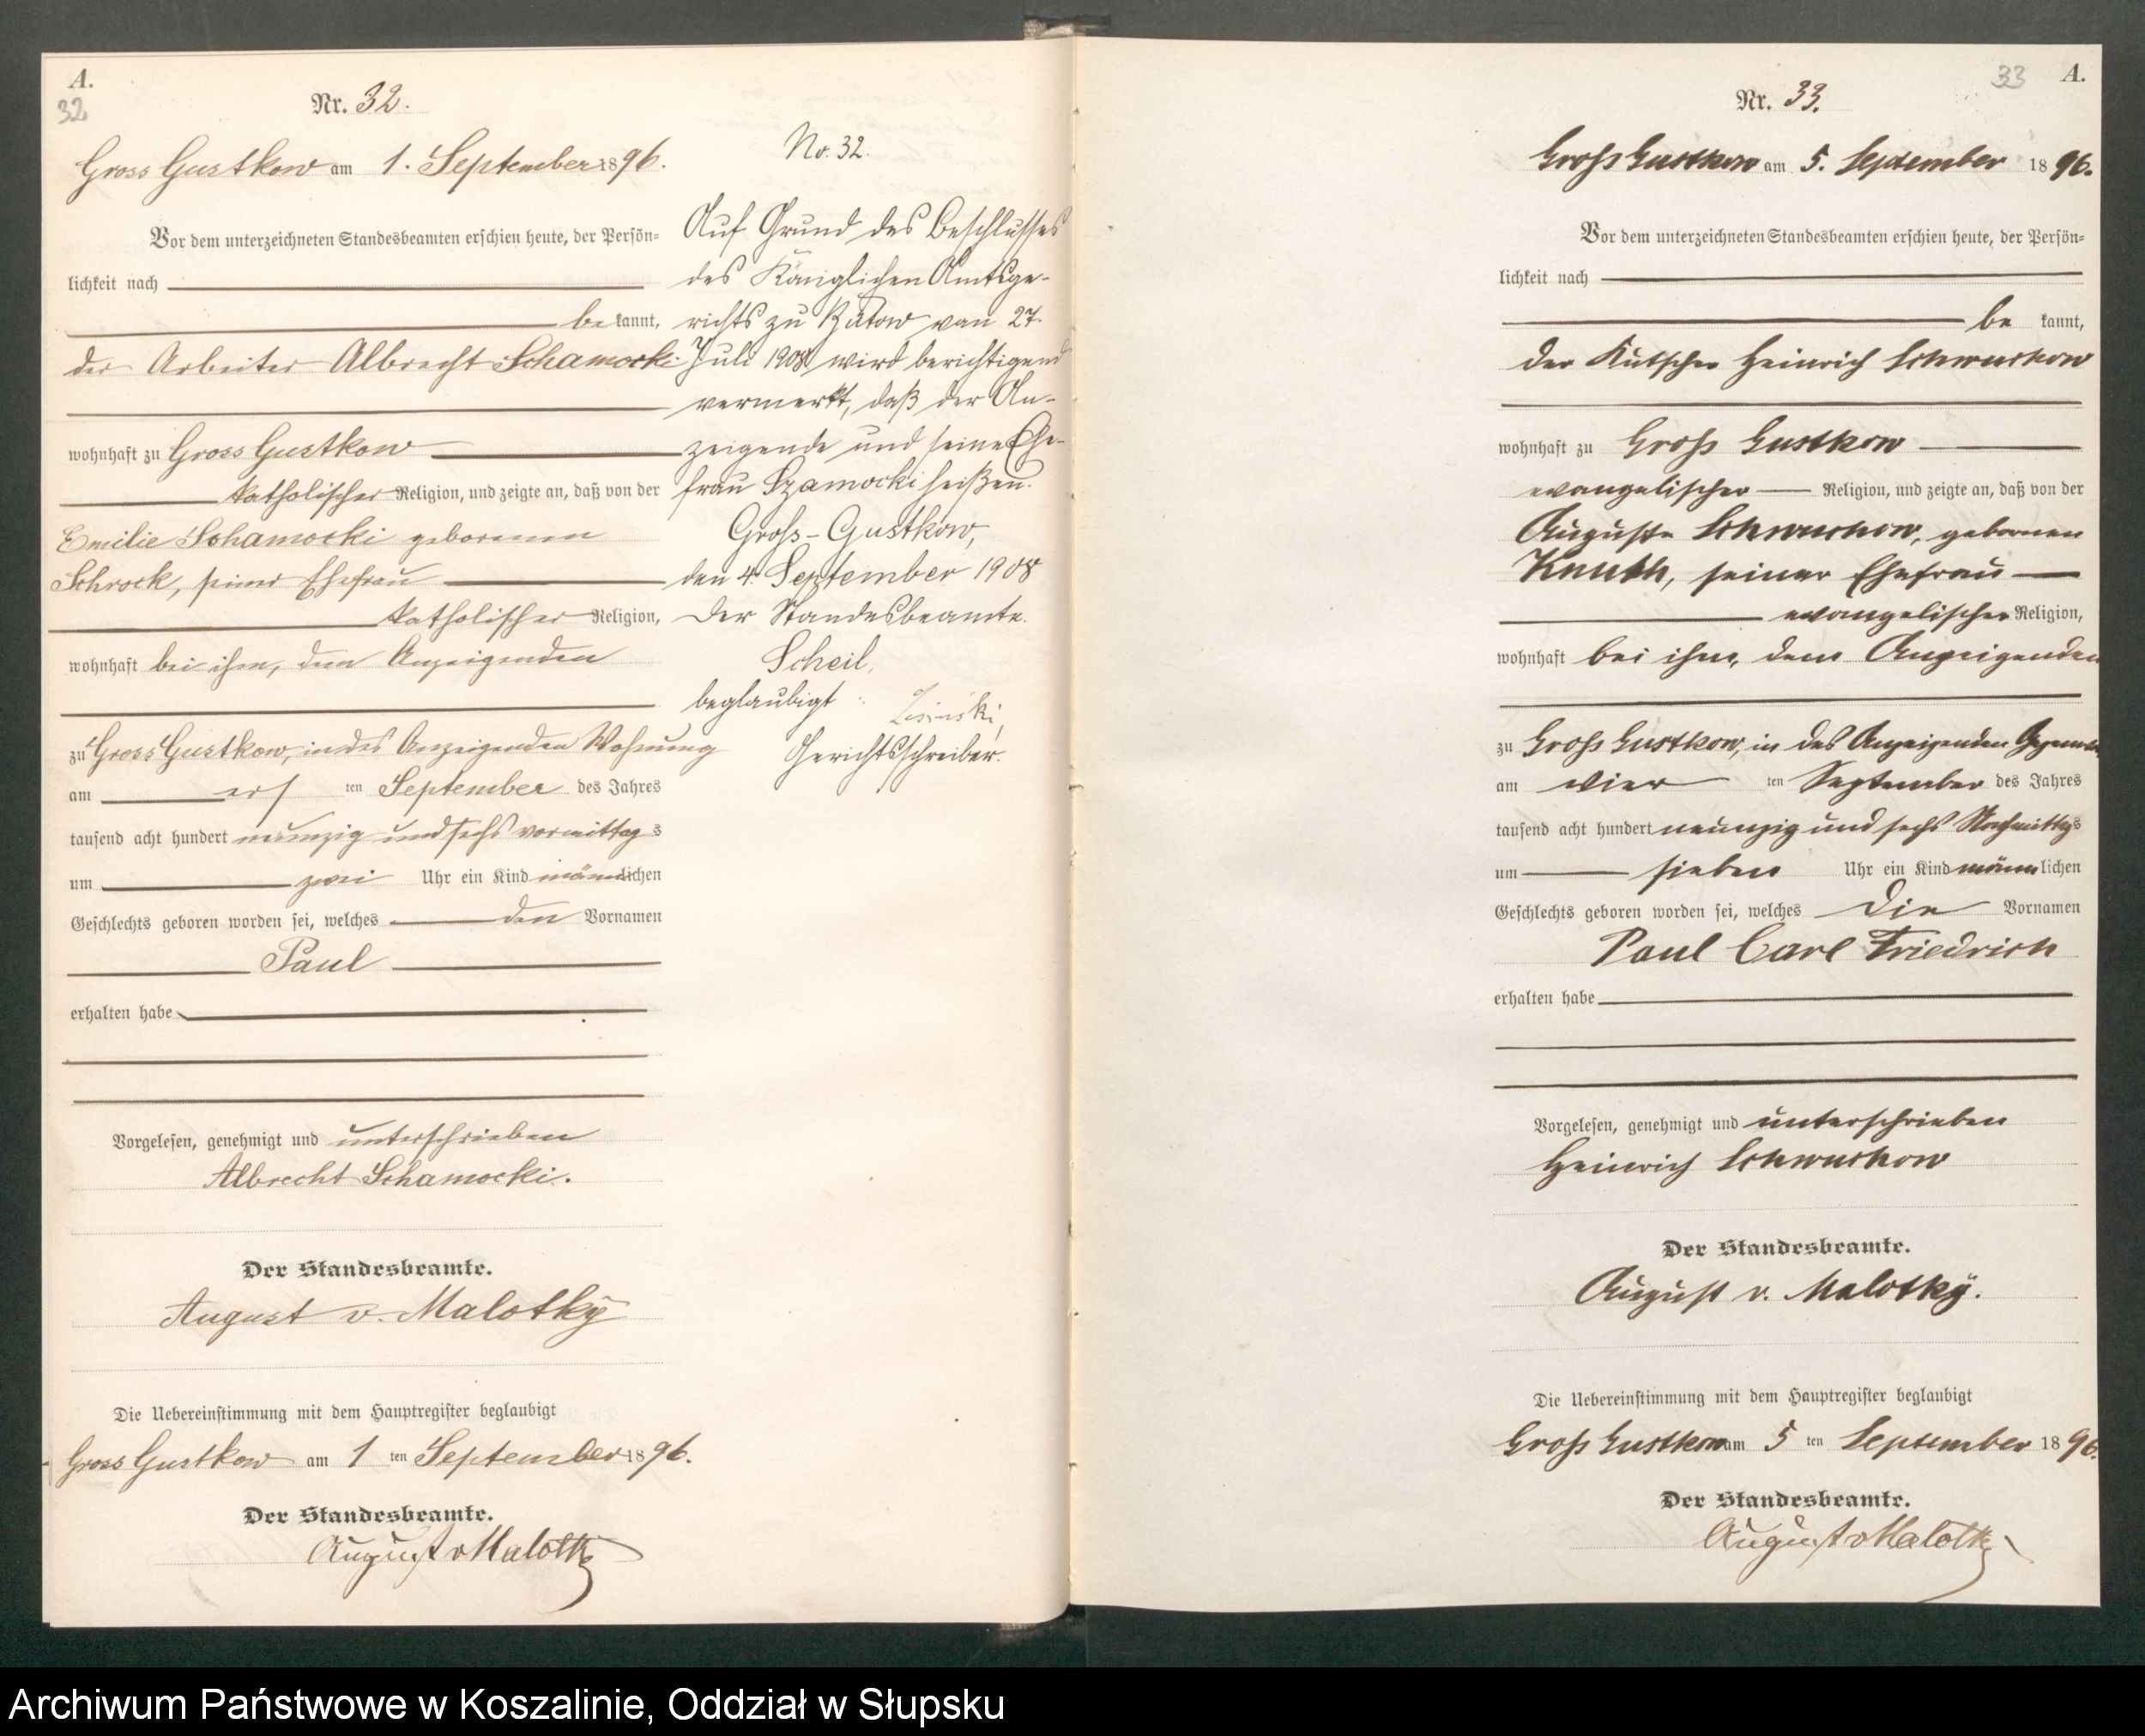 A.
32
Nr. 32.
Gross Gustkow am 1. September 1896.
Vor dem unterzeichneten Standesbeamten erschien heute, der Persön-
lichkeit nach
bekannt,
der Arbeiter Albrecht Schamocki
wohnhaft zu Gross Gustkow
katholischer Religion, und zeigte an, daß von der
Emilie Schamocki geborenen
Schrock, seiner Ehefrau
katholischer Religion,
wohnhaft bei ihm, dem Anzeigenden
zu Gross Gustkow, in des Anzeigenden Wohnung
am ersten September des Jahres
tausend acht hundert neunzig und sechs vormittags
um zwei Uhr ein Kind männlichen
Geschlechts geboren worden sei, welches den Vornamen
Paul
erhalten habe
Vorgelesen, genehmigt und unterschrieben
Albrecht Schamocki.
Der Standesbeamte.
August v. Malotky
Die Uebereinstimmung mit dem Hauptregister beglaubigt
Gross Gustkow am 1ten September 1896.
Der Standesbeamte.
August v Malotky
No. 32.
Auf Grund des Beschlusses
des Königlichen Amtsge-
richts zu Bütow von 27.
Juli 1908 wird berichtigend
vermerkt, daß der An-
zeigende und seine Ehe-
frau Szamocki heißen.
Groß-Gustkow,
den 4. September 1908
Der Standesbeamte.
Scheil.
beglaubigt:
Gerichtsschreiber.
33 A.
Nr. 33.
Groß Gustkow am 5. September 1896.
Vor dem unterzeichneten Standesbeamten erschien heute, der Persön-
lichkeit nach
bekannt,
der Kutscher Heinrich Schwuchow
wohnhaft zu Groß Gustkow
evangelischer Religion, und zeigte an, daß von der
Auguste Schwuchow, gebornen
Knuth, seiner Ehefrau
evangelischer Religion,
wohnhaft bei ihm, dem Anzeigenden
zu Groß Gustkow, in des Anzeigenden Gegenwart
am vierten September des Jahres
tausend acht hundert neunzig und sechs Nachmittags
um sieben Uhr ein Kind männlichen
Geschlechts geboren worden sei, welches die Vornamen
Paul Carl Friedrich
erhalten habe
Vorgelesen, genehmigt und unterschrieben
Heinrich Schwuchow
Der Standesbeamte.
August v. Malotky.
Die Uebereinstimmung mit dem Hauptregister beglaubigt
Groß Gustkow am 5ten September 1896.
Der Standesbeamte.
August v Malotky
Archiwum Państwowe w Koszalinie, Oddział w Słupsku